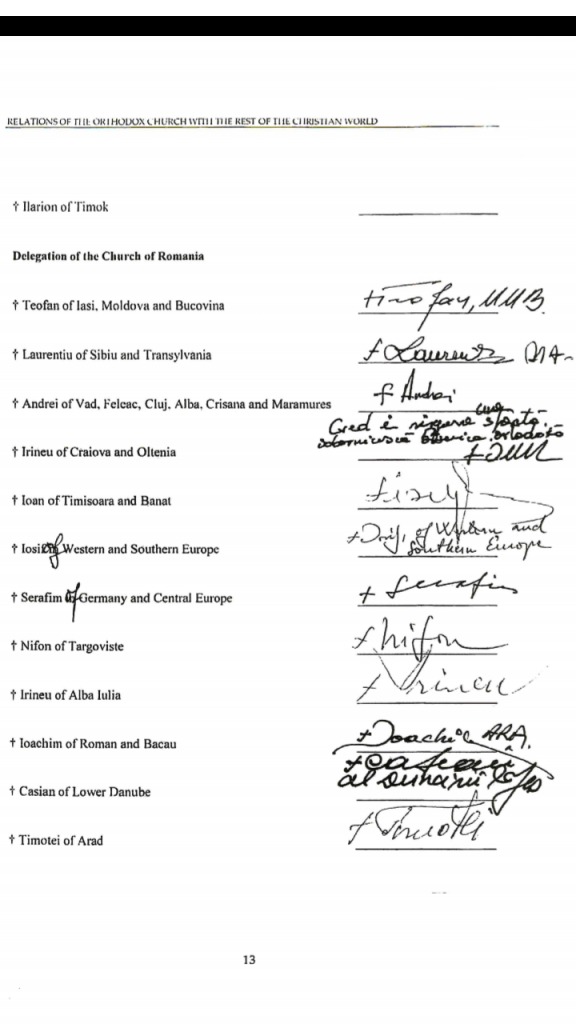 RELATIONS OF THE ORTHODOX CHURCH WITH THE REST OF THE CHRISTIAN WORLD
† Ilarion of Timok
Delegation of the Church of Romania
† Teofan of Iasi, Moldova and Bucovina
† Laurentiu of Sibiu and Transylvania † Laurentiu
† Andrei of Vad, Feleac, Cluj, Alba, Crisana and Maramures † Andrei
Cred în
† Irineu of Craiova and Oltenia
† Ioan of Timisoara and Banat
† Iosif of Western and Southern Europe of Western and
Southern Europe
† Serafim of Germany and Central Europe + Serafim
† Nifon of Targoviste + Nifon
† Irineu of Alba Iulia + Irineu
† Ioachim of Roman and Bacau + Ioachim
† Casian of Lower Danube al Dunării
† Timotei of Arad + Timotei
13